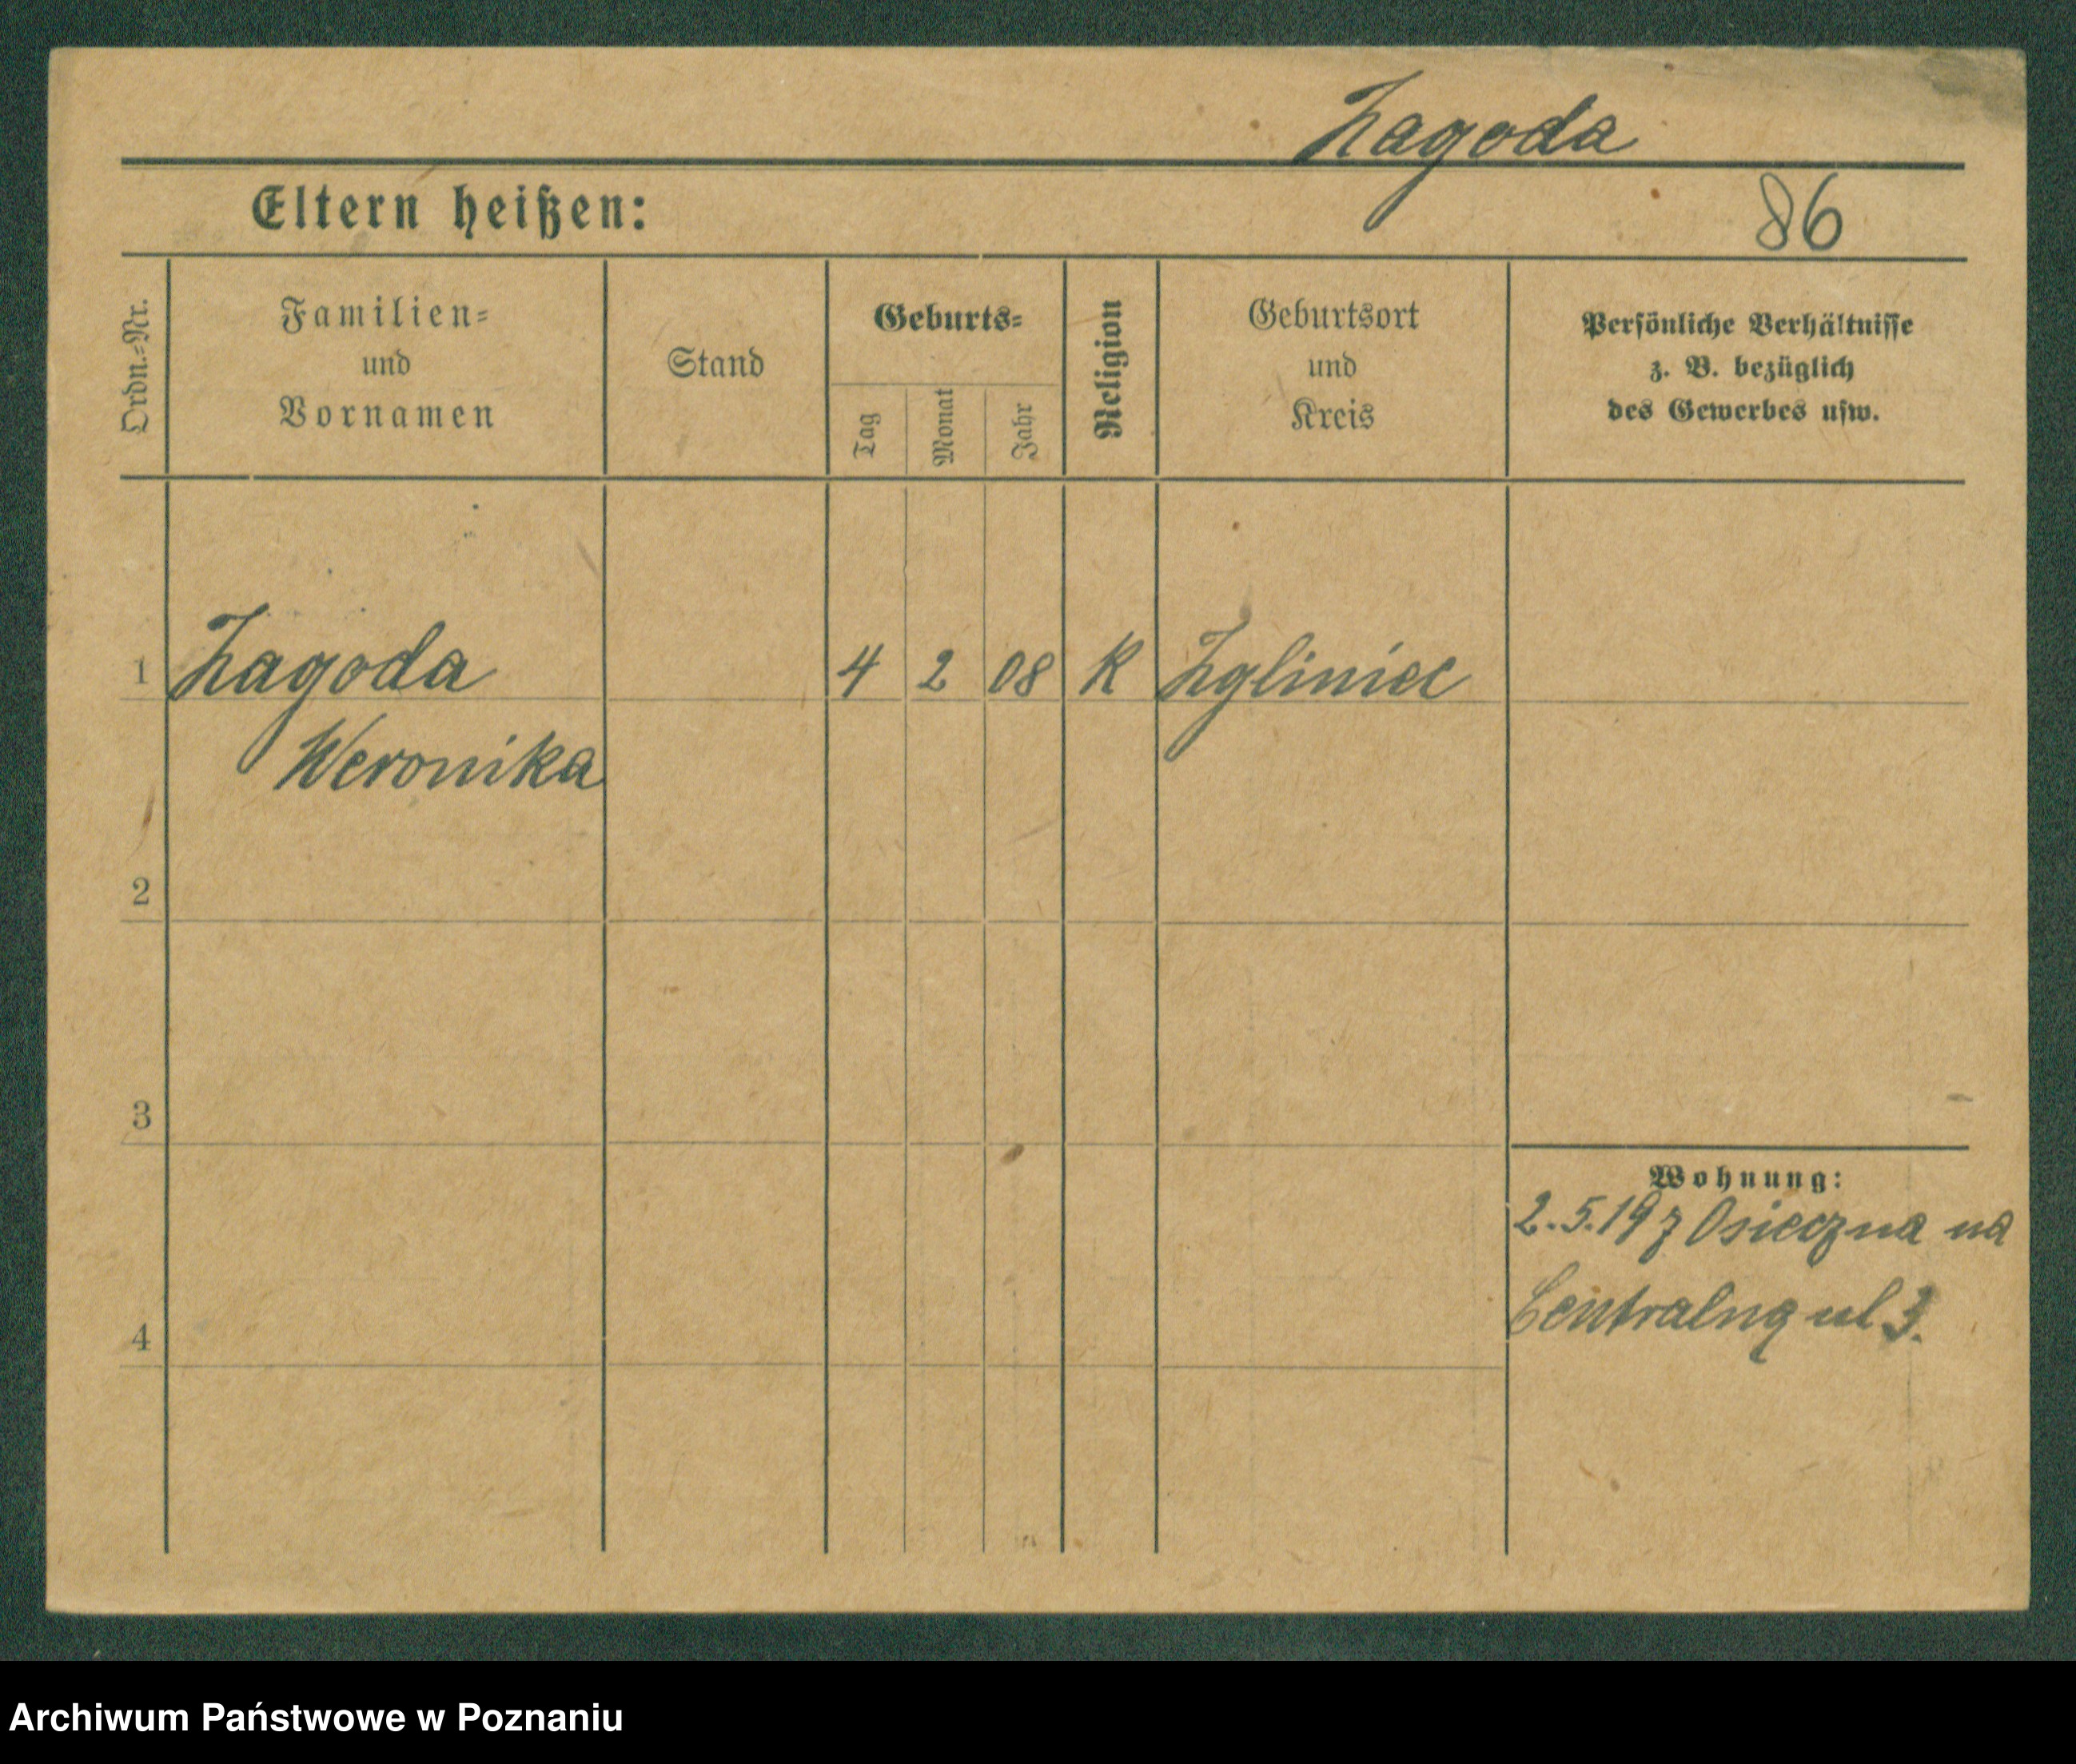 Zagoda
Eltern heißen:
86
Ordn.=Nr.
Familien=
und
Vornamen
Stand
Geburts=
Tag
Monat
Jahr
Religion
Geburtsort
und
Kreis
Persönliche Verhältnisse
z. B. bezüglich
des Gewerbes usw.
1 Zagoda 4 2 08 K Zgliniec
Weronika
2
3
Wohnung:
2.5.197 Osieczna na
Centralną ul 3.
4
Archiwum Państwowe w Poznaniu